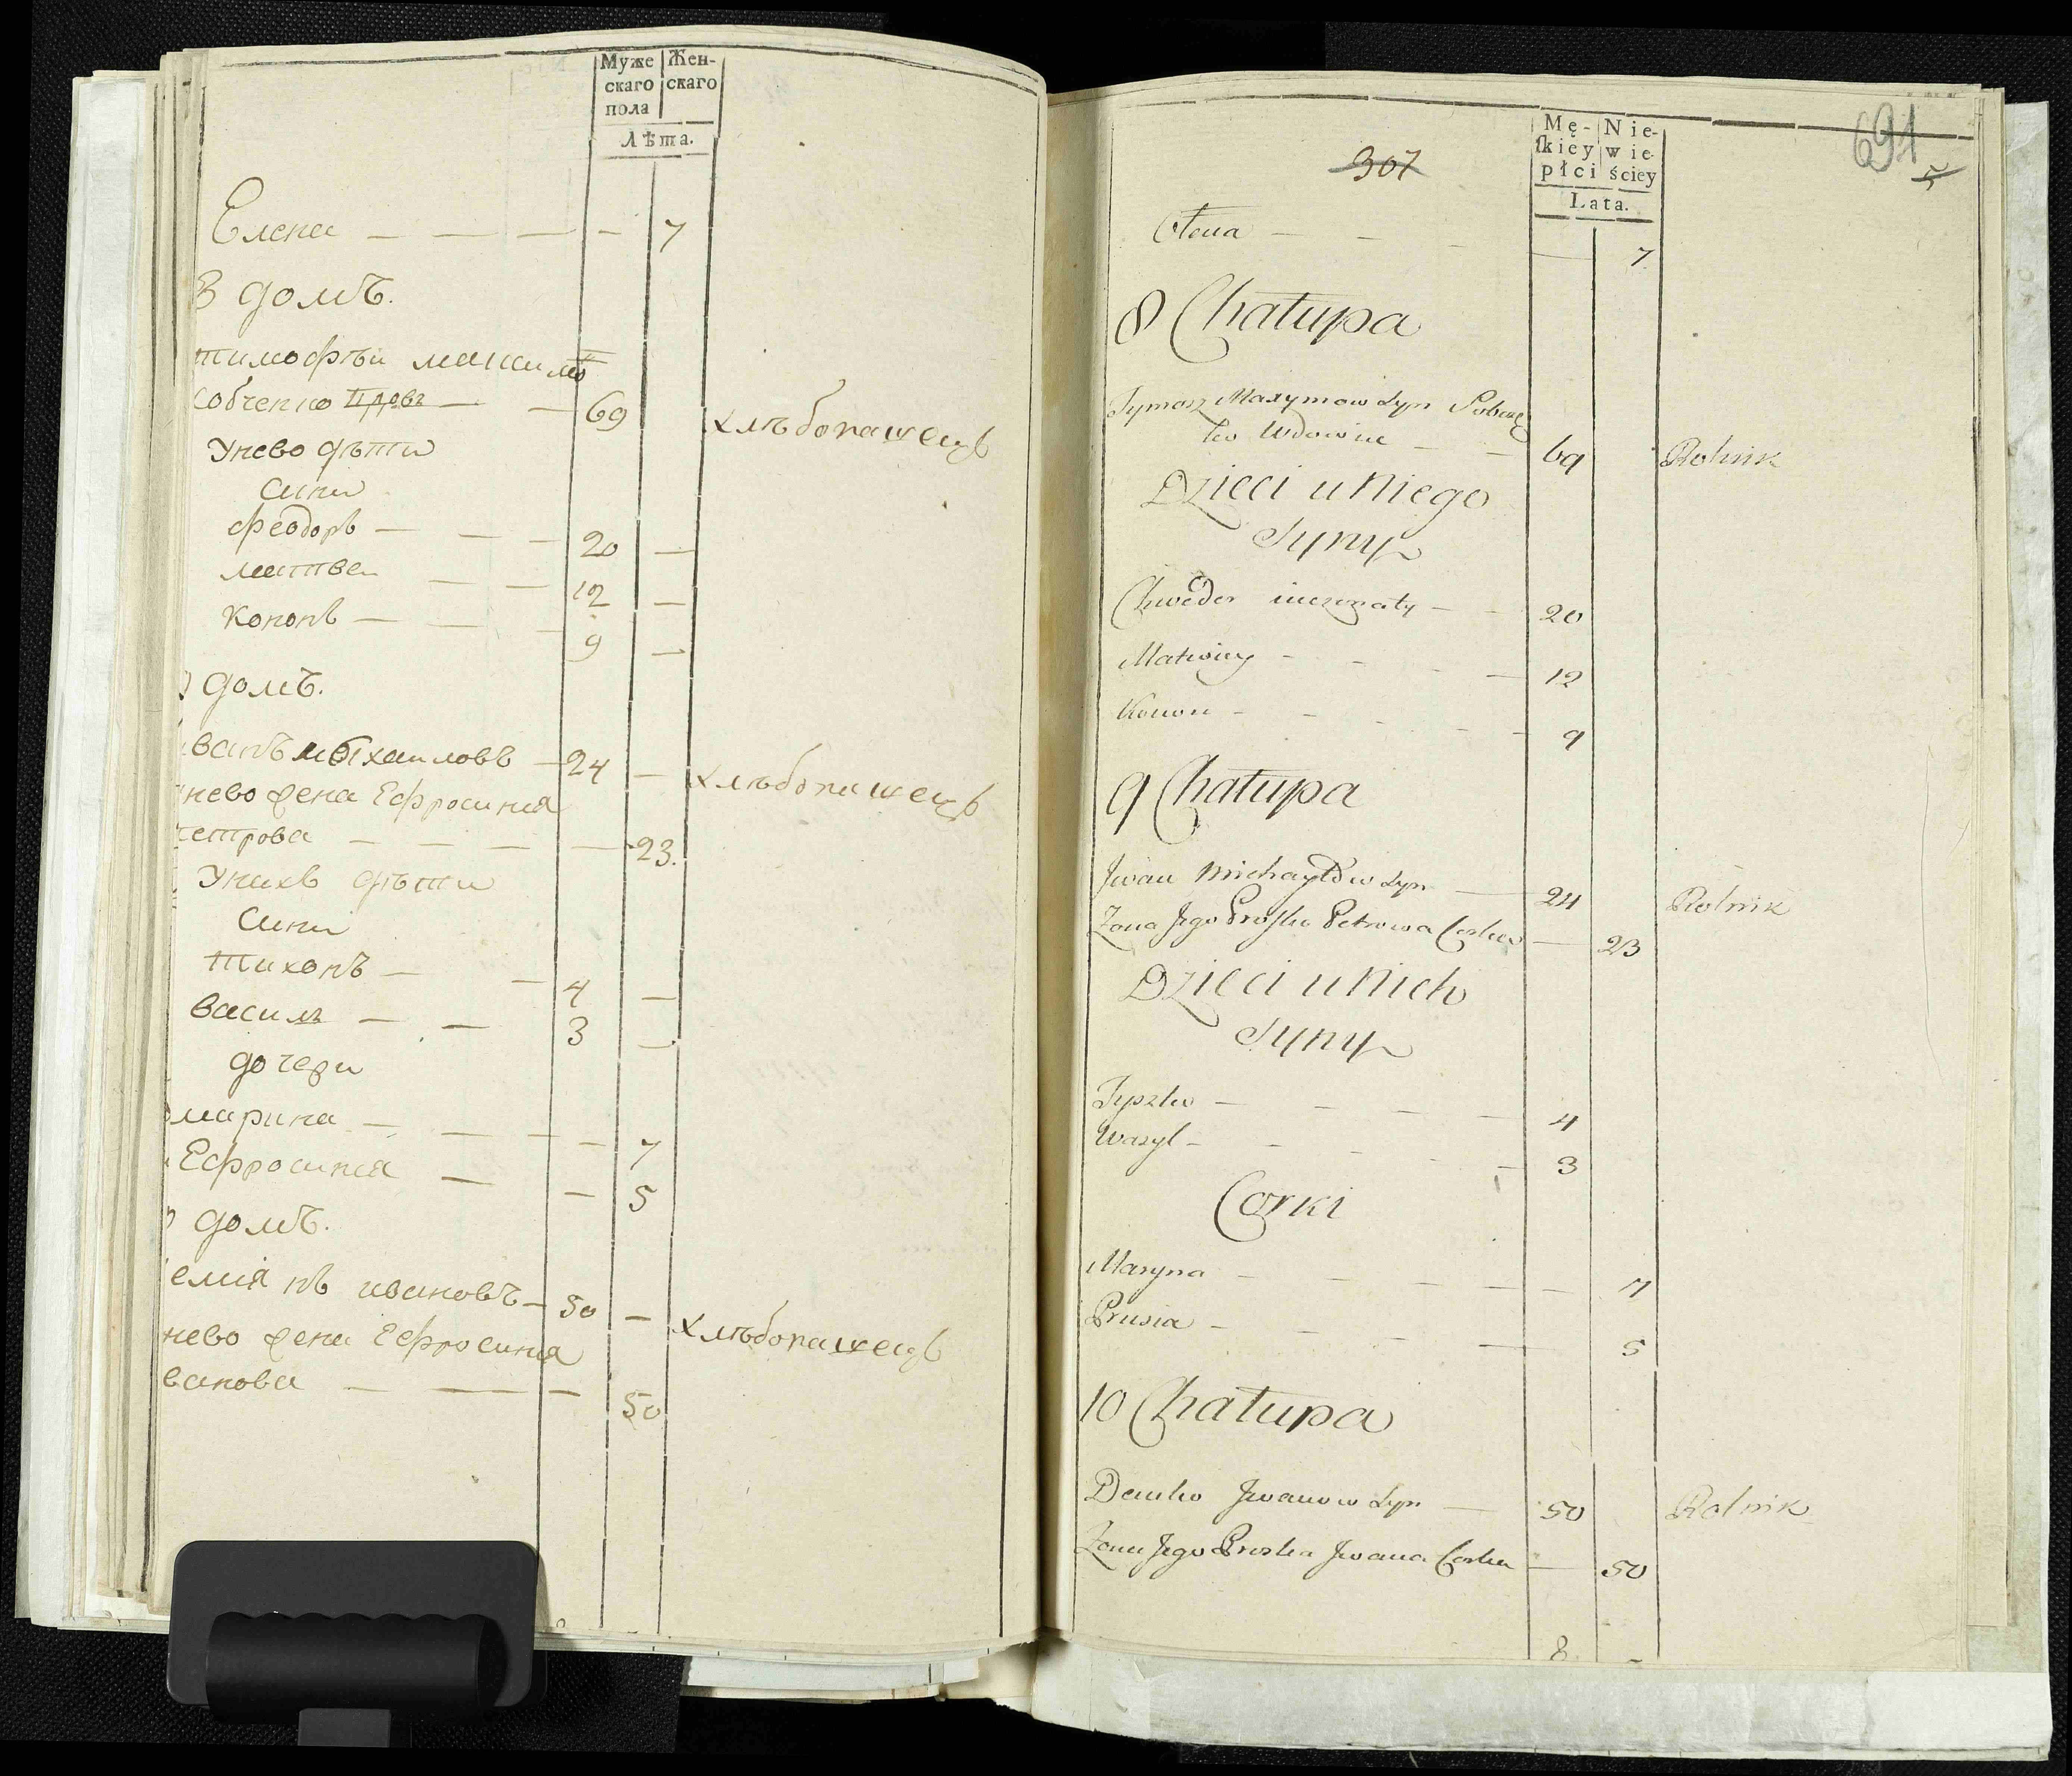 Муже Жен-
скаго скаго
пола
Лѣта.
Елена — — — — 7
8 домЪ.
тимофѣи
собченко вдовъ — — 69 хлѣбопашецъ
Унево дѣти
Сини
феодоръ — — — 20 —
матвеи — — 12 —
кононъ — — — 9 —
домЪ.
иванЪ михаиловъ — 24 — хлѣбопашецъ
унево жена Ефросиния
петрова — — — — 23.
Унихъ дѣти
Сини
тихонЪ — — 4 —
василь — — 3 —
дочери
марина — — — — 7
Ефросиния — — 5
домЪ.
емиянъ ивановЪ — 50 — хлѣбопашецъ
нево жена Ефросиния
ванова — — — 50
691
5
307
Mę- Nie-
skiey wie-
płci ściey
Lata.
Olena — — — — 7
8 Chałupa
Tymosz Maxymow Syn Sobczeń
ko Wdowiec — — 69 Rolnik
Dzieci u Niego
Syny
Chwedor nieżonaty — — 20
Matwiey — — — — 12
Konon — — — — 9
9 Chałupa
Jwan Michayłow Syn — 24 Rolnik
Zona Jego Proska Petrowa Corka — 23
Dzieci u Nich
Syny
Tyszko — — — — 4
Wasyl — — — — 3
Corki
Maryna — — — — — 7
Prusia — — — — 5
10 Chałupa
Demko Jwanow Syn — 50 Rolnik
Zona Jego Proska Jwana Corka — 50
8 -